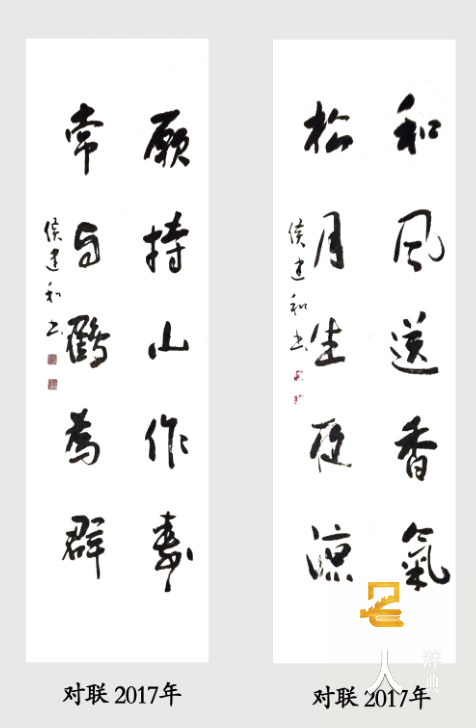 願持山作壽
常与鶴為群
侯建和书
对联 2017年
和风送香氣
松月生夜涼
侯建和书
对联 2017年
人
辞典